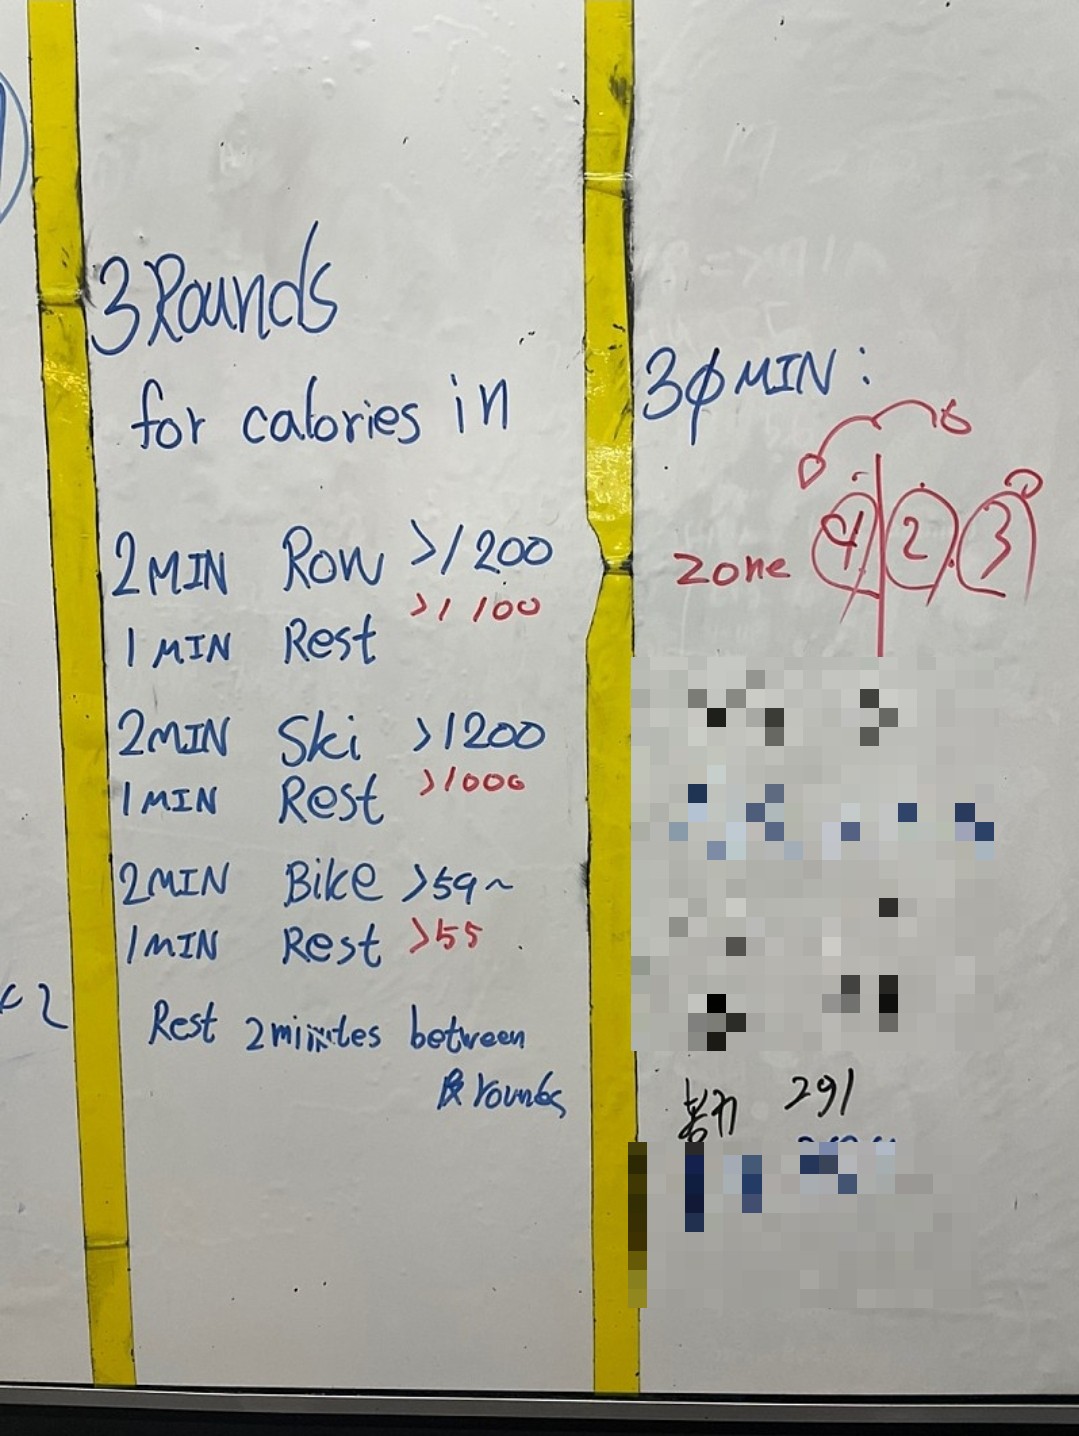 3 Rounds
for calories in
2 MIN Row >1200
>1100
1 MIN Rest
2 MIN Ski >1200
>1000
1 MIN Rest
2 MIN Bike >59~
1 MIN Rest >55
Rest 2 minutes between
rounds
2
30 MIN :
zone 1 2 3
291